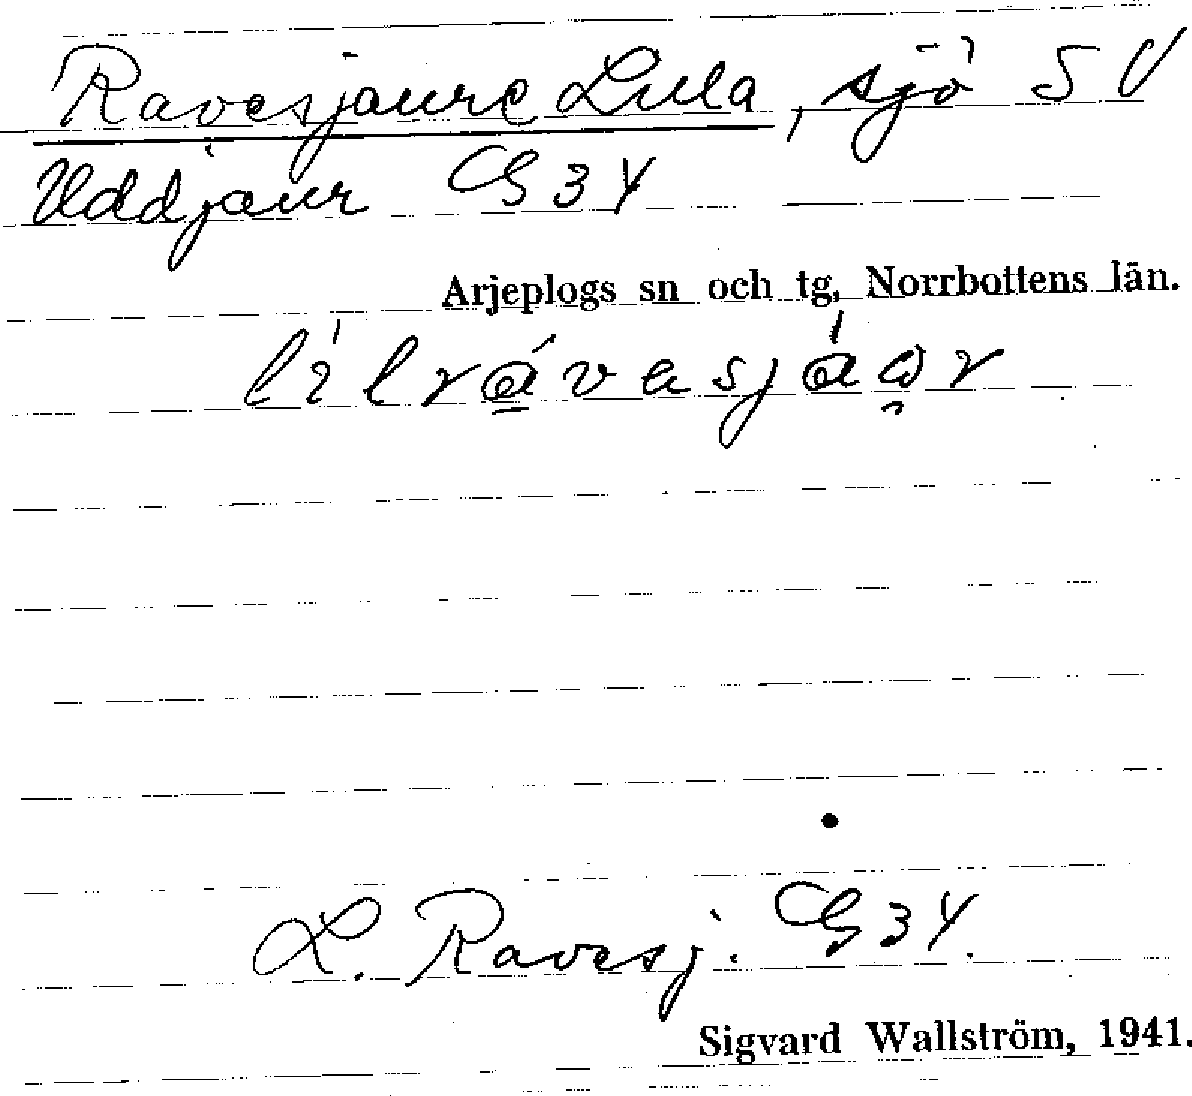 Ravesjaure Lilla, sjö SV
Uddjaur G34
Arjeplogs sn och tg, Norrbottens län.
lìlrávasjáor
L. Ravesj. G34.
Sigvard Wallström, 1941.